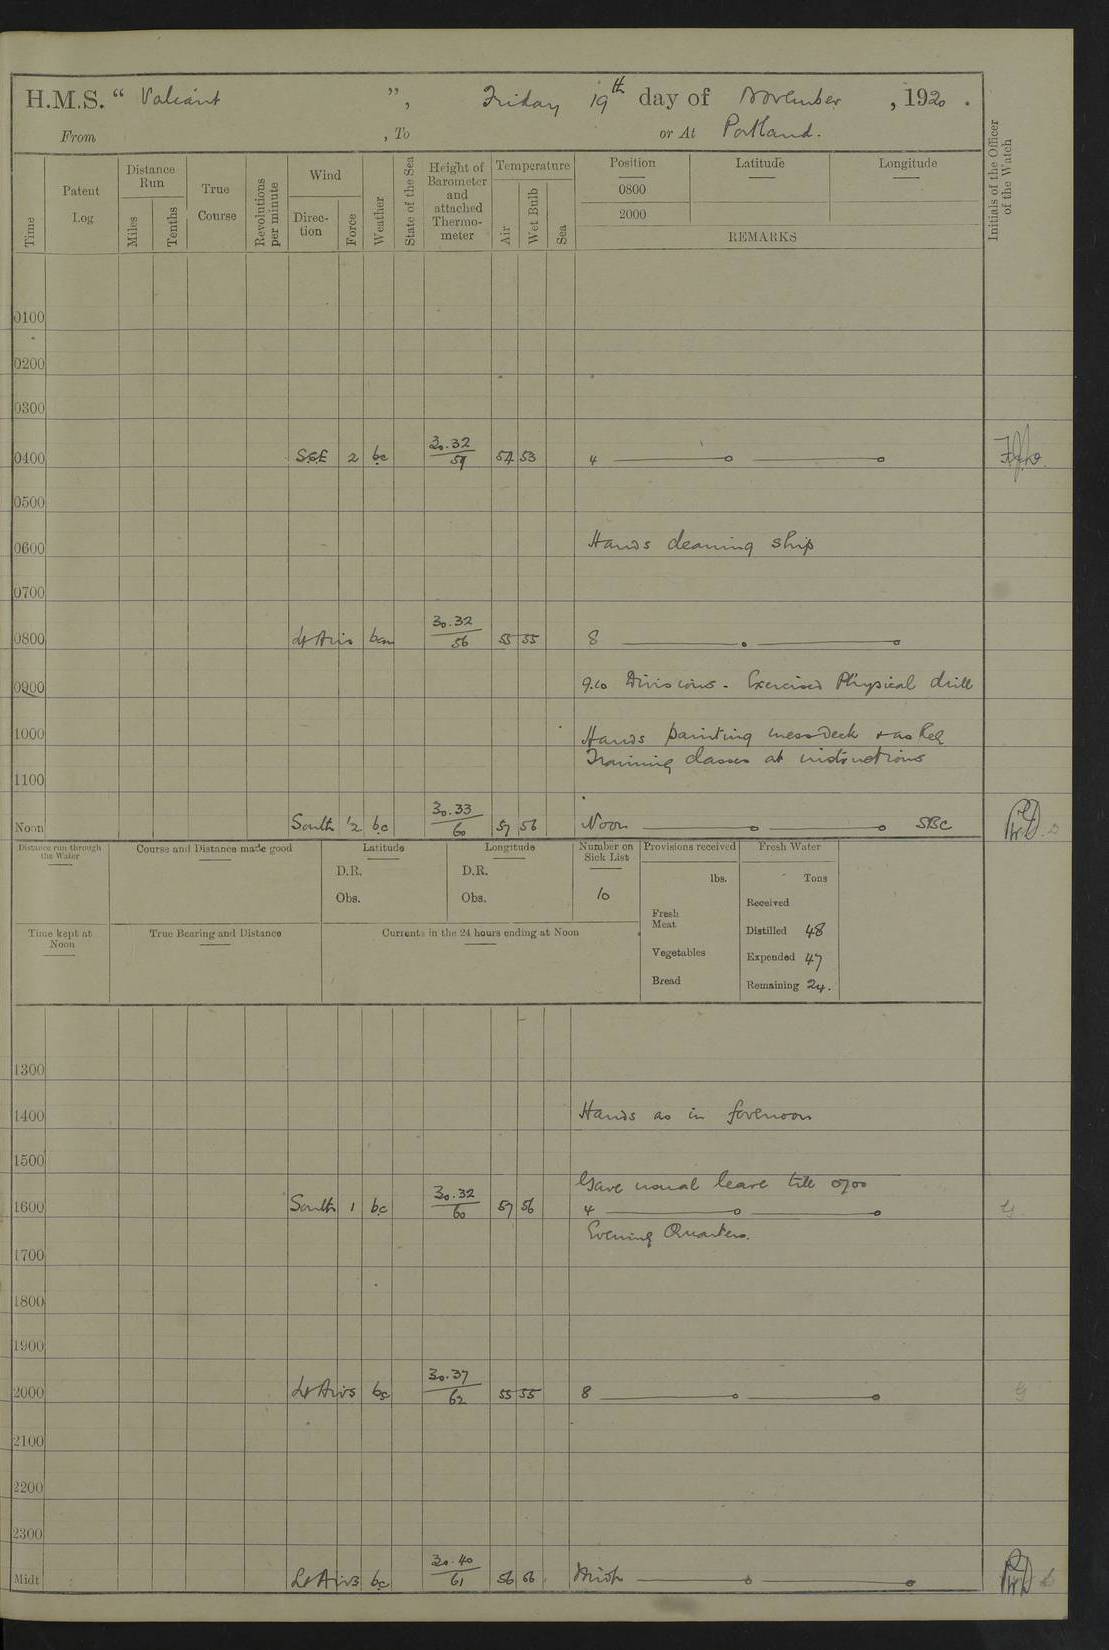 H.M.S. “ Valiant ”, Friday 19th day of November , 1920 .
From , To or At Portland.
Time
Patent Log
Distance Run
Miles
Tenths
True Course
Revolutions per minute
Wind
Direction
Force
Weather
State of the Sea
Height of Barometer and attached Thermometer
Temperature
Air
Wet Bulb
Sea
Position Latitude Longitude
0800
2000
REMARKS
Initials of the Officer of the Watch
0100
0200
0300
0400 SSE 2 bc 30.32 / 59 57 53 4
0500
0600 Hands cleaning ship
0700
0800 Lt Airs bcm 30.32 / 56 55 55 8
0900 9.10 Divisions - Exercised Physical drill
1000 Hands painting messdeck & as req
Training classes at instructions
1100
Noon South ½ bc 30.33 / 60 57 56 Noon SBC
Distance run through the Water
Course and Distance made good
Latitude
D.R.
Obs.
Longitude
D.R.
Obs.
Number on Sick List
10
Provisions received
lbs.
Fresh Meat
Vegetables
Bread
Fresh Water
Tons
Received
Distilled 48
Expended 47
Remaining 24.
Time kept at Noon
True Bearing and Distance
Currents in the 24 hours ending at Noon
1300
1400 Hands as in forenoon
1500
Gave usual leave till 0700
1600 South 1 bc 30.32 / 60 57 56 4
Evening Quarters.
1700
1800
1900
2000 Lt Airs bc 30.37 / 62 55 55 8
2100
2200
2300
Midt Lt Airs bc 30.40 / 61 56 56 Midt